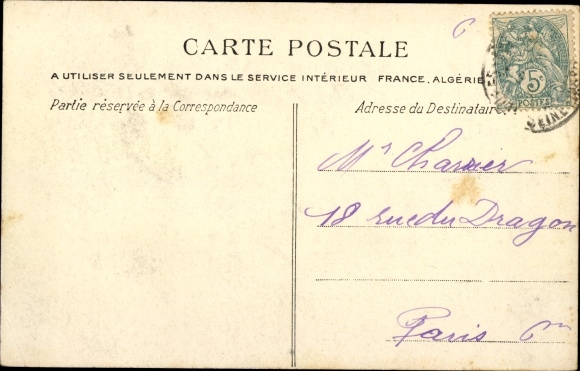 CARTE POSTALE
A UTILISER SEULEMENT DANS LE SERVICE INTÉRIEUR FRANCE, ALGÉRIE
Partie réservée à la Correspondance
Adresse du Destinataire
5c
POSTES
SEINE
Mr Charrier
18 rue du Dragon
Paris 6me